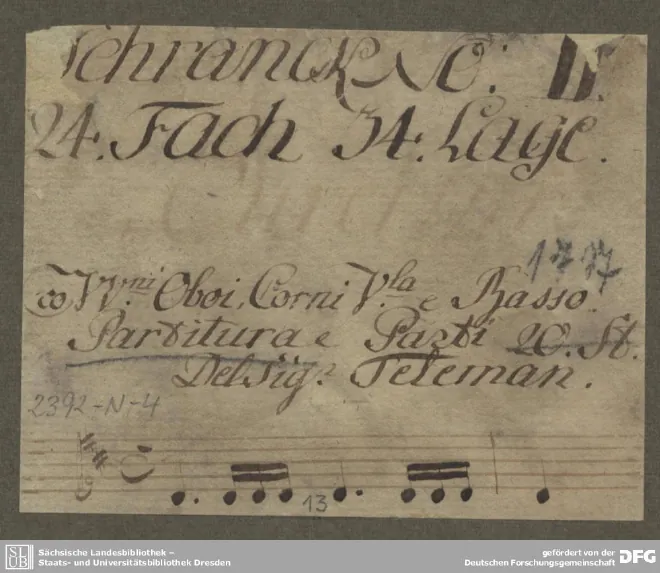 Schranck No: II.
24. Fach 34. Lage.
17 17
co VV.ni Oboi, Corni V.la e Basso.
Partitura e Parti 20. St.
Del Sig.r Teleman.
2392-N-4
13
SLUB
Sächsische Landesbibliothek –
Staats- und Universitätsbibliothek Dresden
gefördert von der
Deutschen Forschungsgemeinschaft
DFG